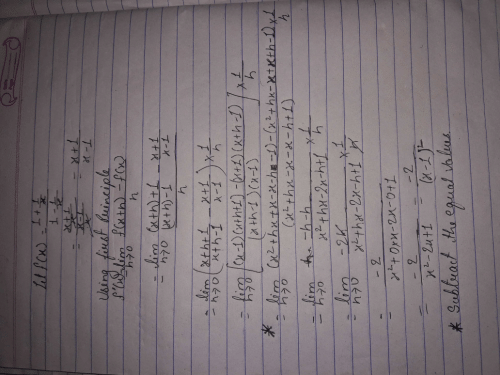 Let f(x) = (1 + 1/x)/(1 - 1/x)
= ((x+1)/x)/((x-1)/x) = (x+1)/(x-1)
Using first principle
f'(x) = lim h→0 (f(x+h) - f(x))/h
= lim h→0 (((x+h)+1)/((x+h)-1) - (x+1)/(x-1))/h
= lim h→0 ((x+h+1)/(x+h-1) - (x+1)/(x-1)) × 1/h
= lim h→0 [((x-1)(x+h+1) - (x+1)(x+h-1))/((x+h-1)(x-1))] × 1/h
* = lim h→0 ((x²+hx+x-x-h-1) - (x²+hx-x+x+h-1))/(x²+hx-x-x-h+1) × 1/h
= lim h→0 (-h-h)/(x²+hx-2x-h+1) × 1/h
= lim h→0 -2h/(x²+hx-2x-h+1) × 1/h
= -2/(x²+0x-2x-0+1)
= -2/(x²-2x+1) = -2/(x-1)²
* Subtract the equal values